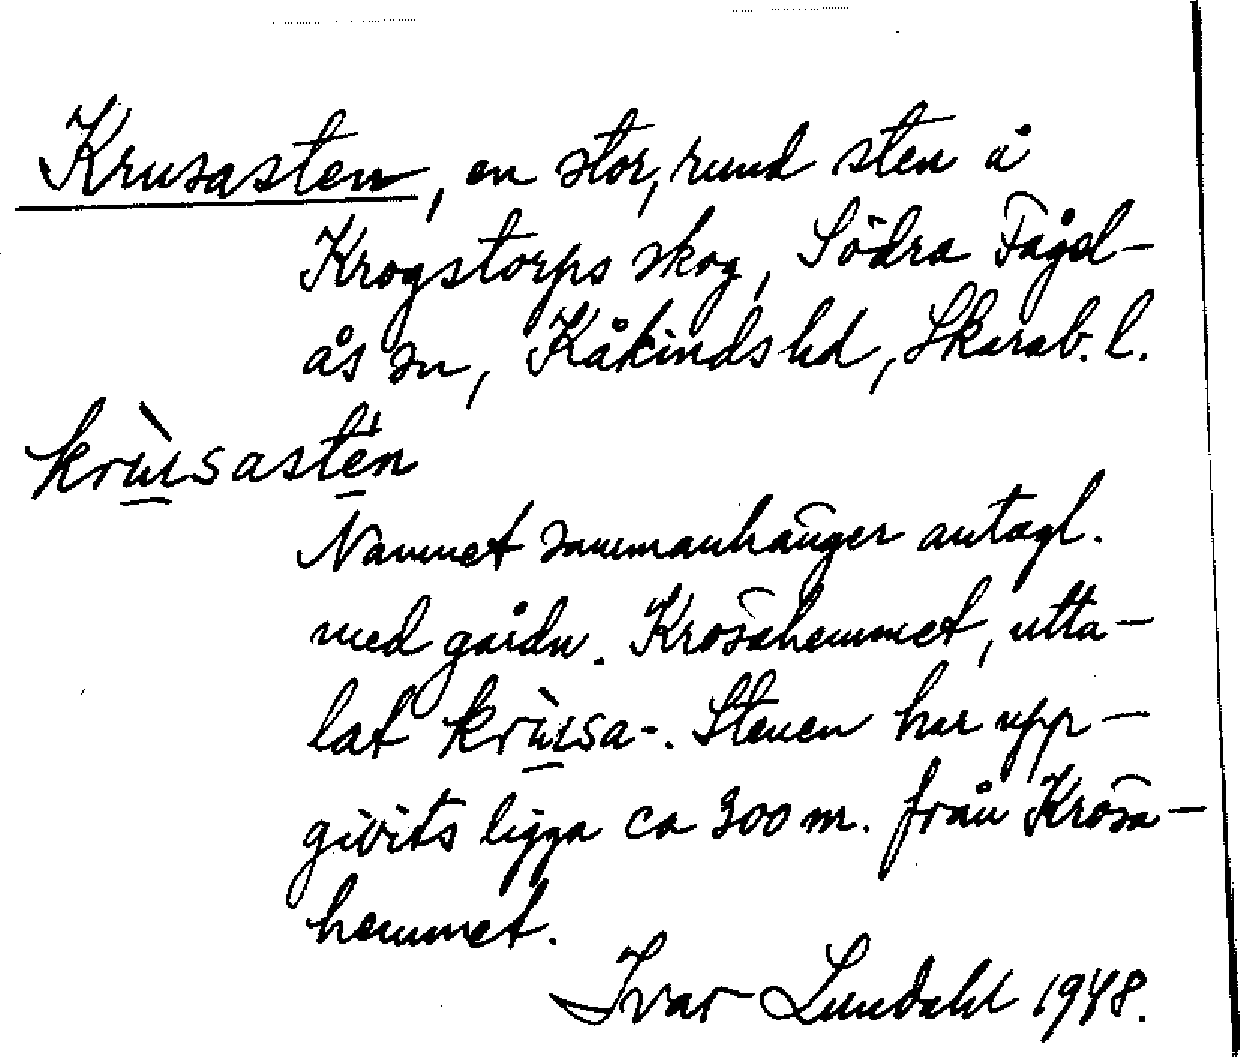 Krusasten, en stor, rund sten å
Krogstorps skog, Södra Fågel-
ås sn, Kåkinds hd, Skarab. l.
krùsastén
Namnet sammanhänger antagl.
med gårdn. Krösahemmet, utta-
lat krùsa-. Stenen har upp-
givits ligga ca 300 m. från Krösa-
hemmet.
Ivar Lundahl 1948.